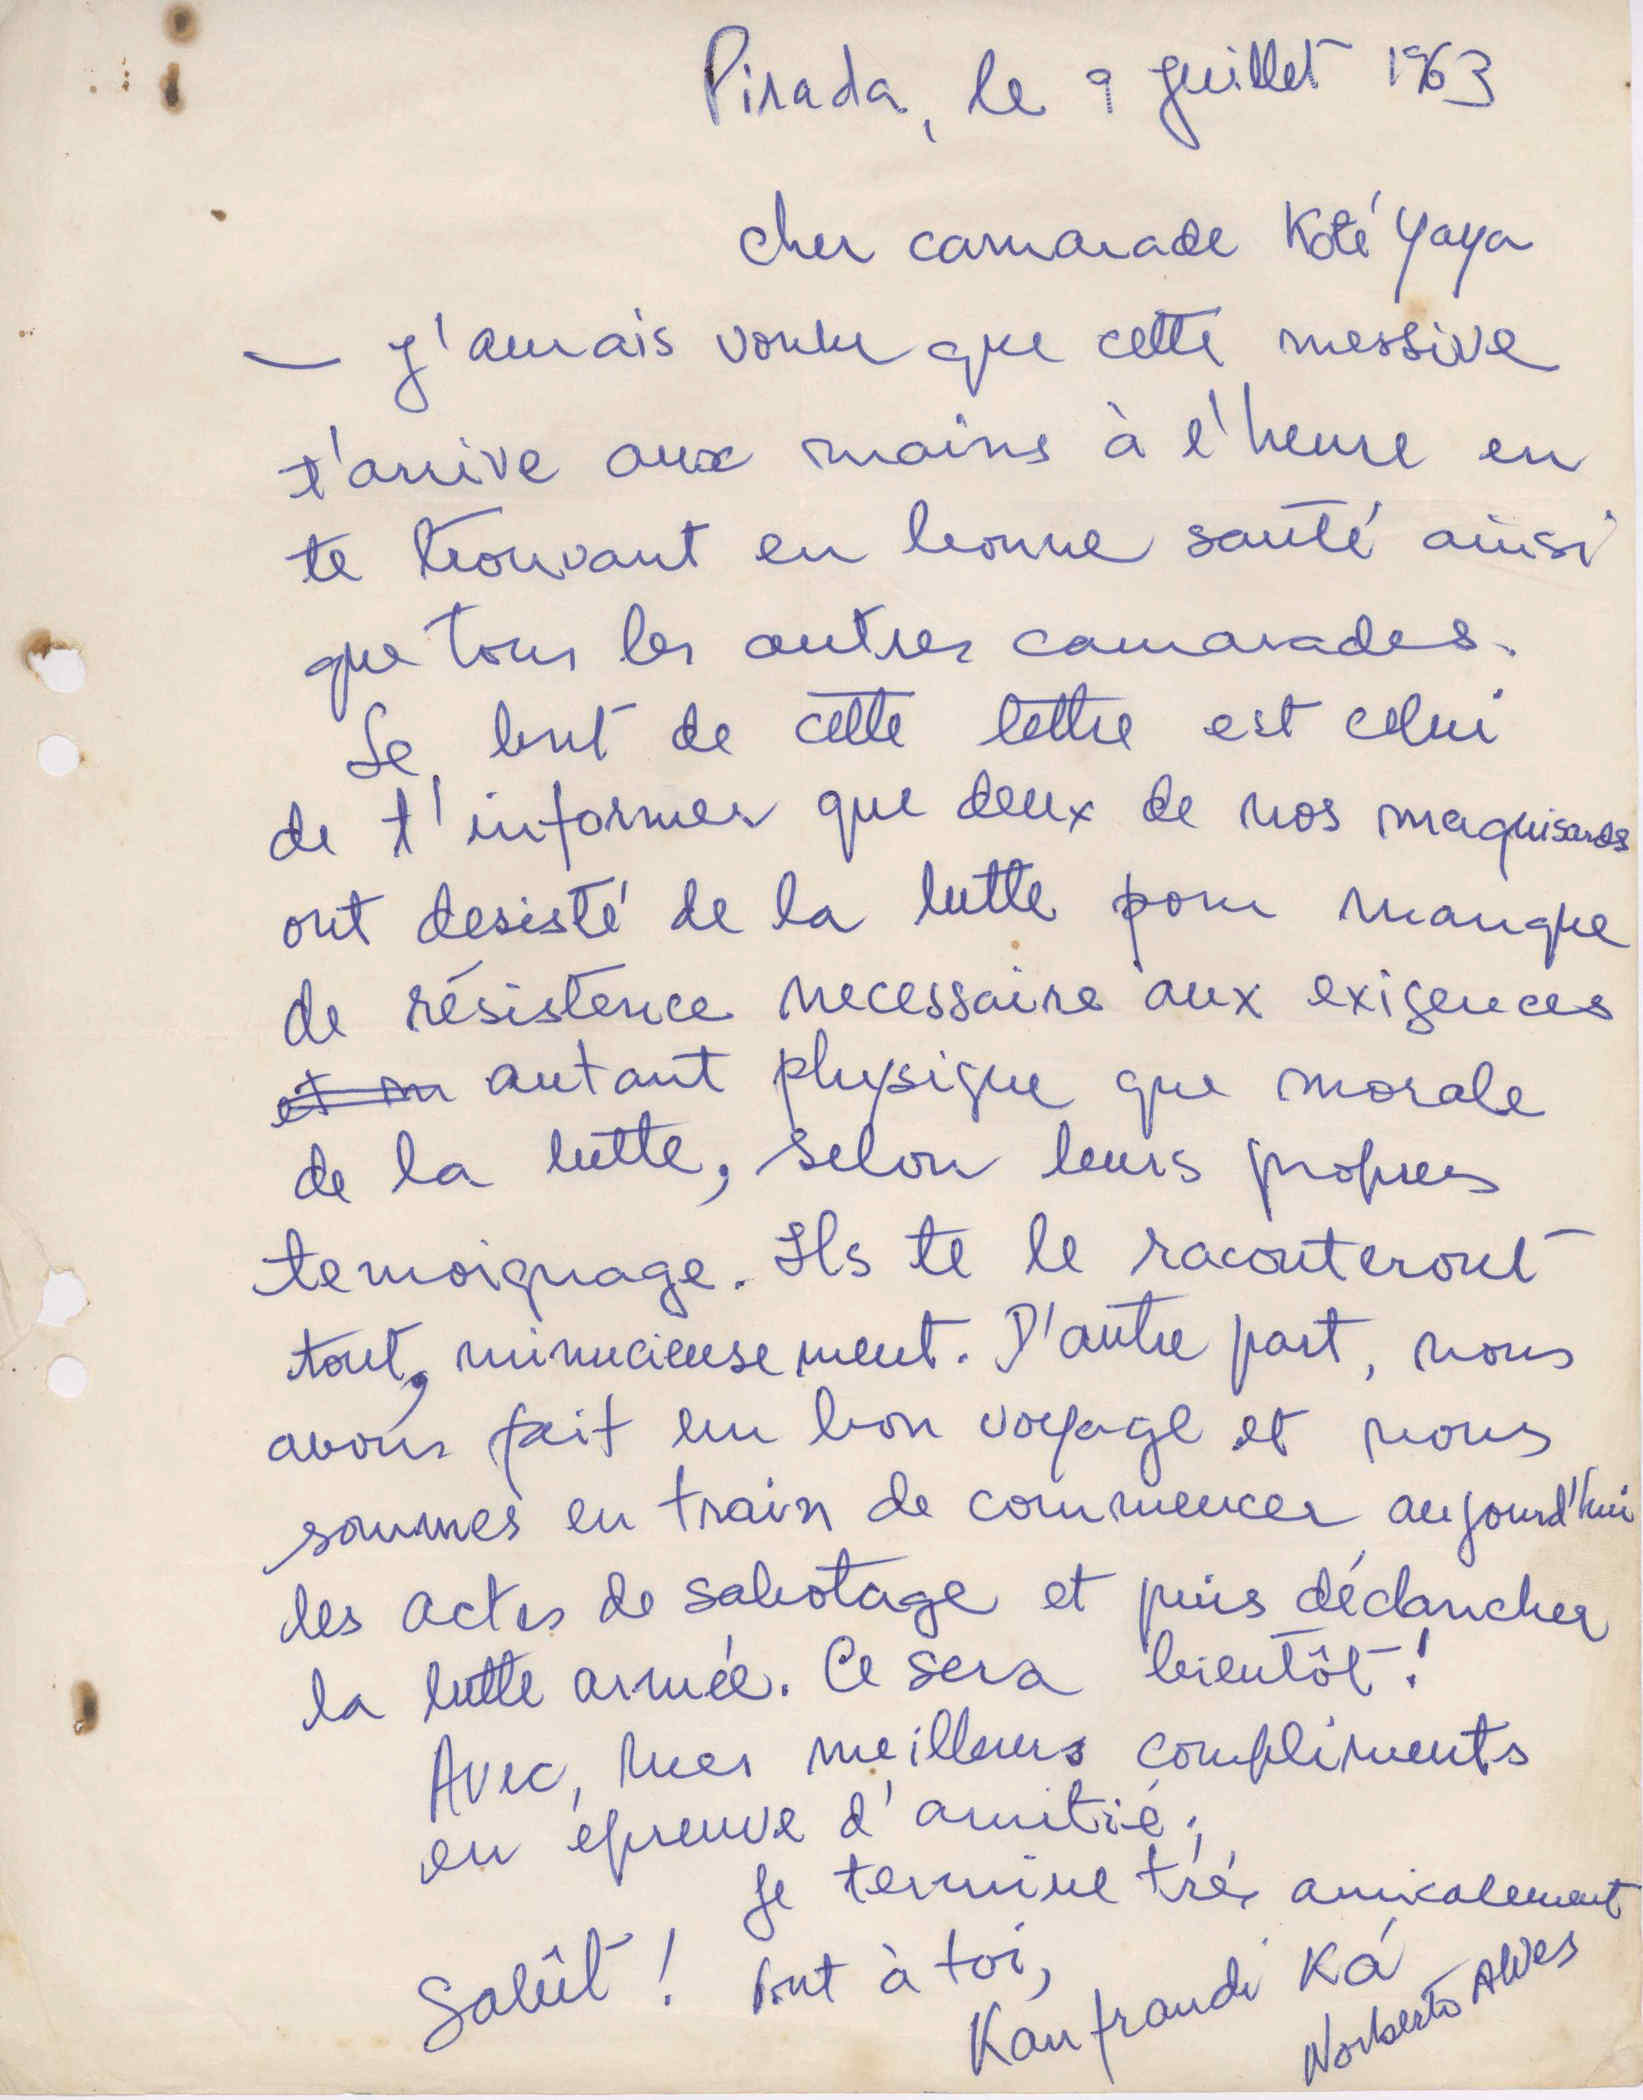 Pirada, le 9 Juillet 1963
cher camarade Koté Yaya
— J'aurais voulu que cette messive
t'arrive aux mains à l'heure en
te trouvant en bonne santé ainsi
que tous les autres camarades.
Le but de cette lettre est celui
de t'informer que deux de nos maquisards
ont desisté de la lutte pour manque
de résistence necessaire aux exigences
autant physique que morale
de la lutte, selon leurs propres
temoignage. Ils te le raconteront
tout, minucieusement. D'autre part, nous
avons fait un bon voyage et nous
sommes en train de commencer aujourd'hui
les actes de sabotage et puis déclancher
la lutte armée. Ce sera bientôt!
Avec, mes meilleurs compliments
en épreuve d'amitié;
Je termine trés amicalement
Salût! tout à toi,
Kanfrandi Ká
Norberto Alves